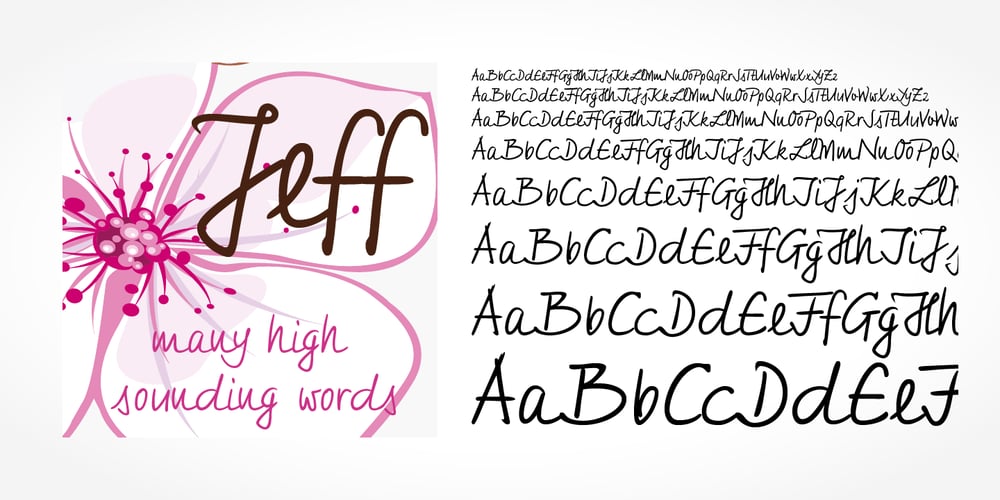 Jeff
many high
sounding words
AaBbCcDdEeFfGgHhIiJjKkLlMmNnOoPpQqRrSsTtUuVvWwXxYyZz
AaBbCcDdEeFfGgHhIiJjKkLlMmNnOoPpQqRrSsTtUuVvWwXxYyZz
AaBbCcDdEeFfGgHhIiJjKkLlMmNnOoPpQqRrSsTtUuVvWw
AaBbCcDdEeFfGgHhIiJjKkLlMmNnOoPpQ
AaBbCcDdEeFfGgHhIiJjKkLl
AaBbCcDdEeFfGgHhIiJj
AaBbCcDdEeFfGgHh
AaBbCcDdEeF